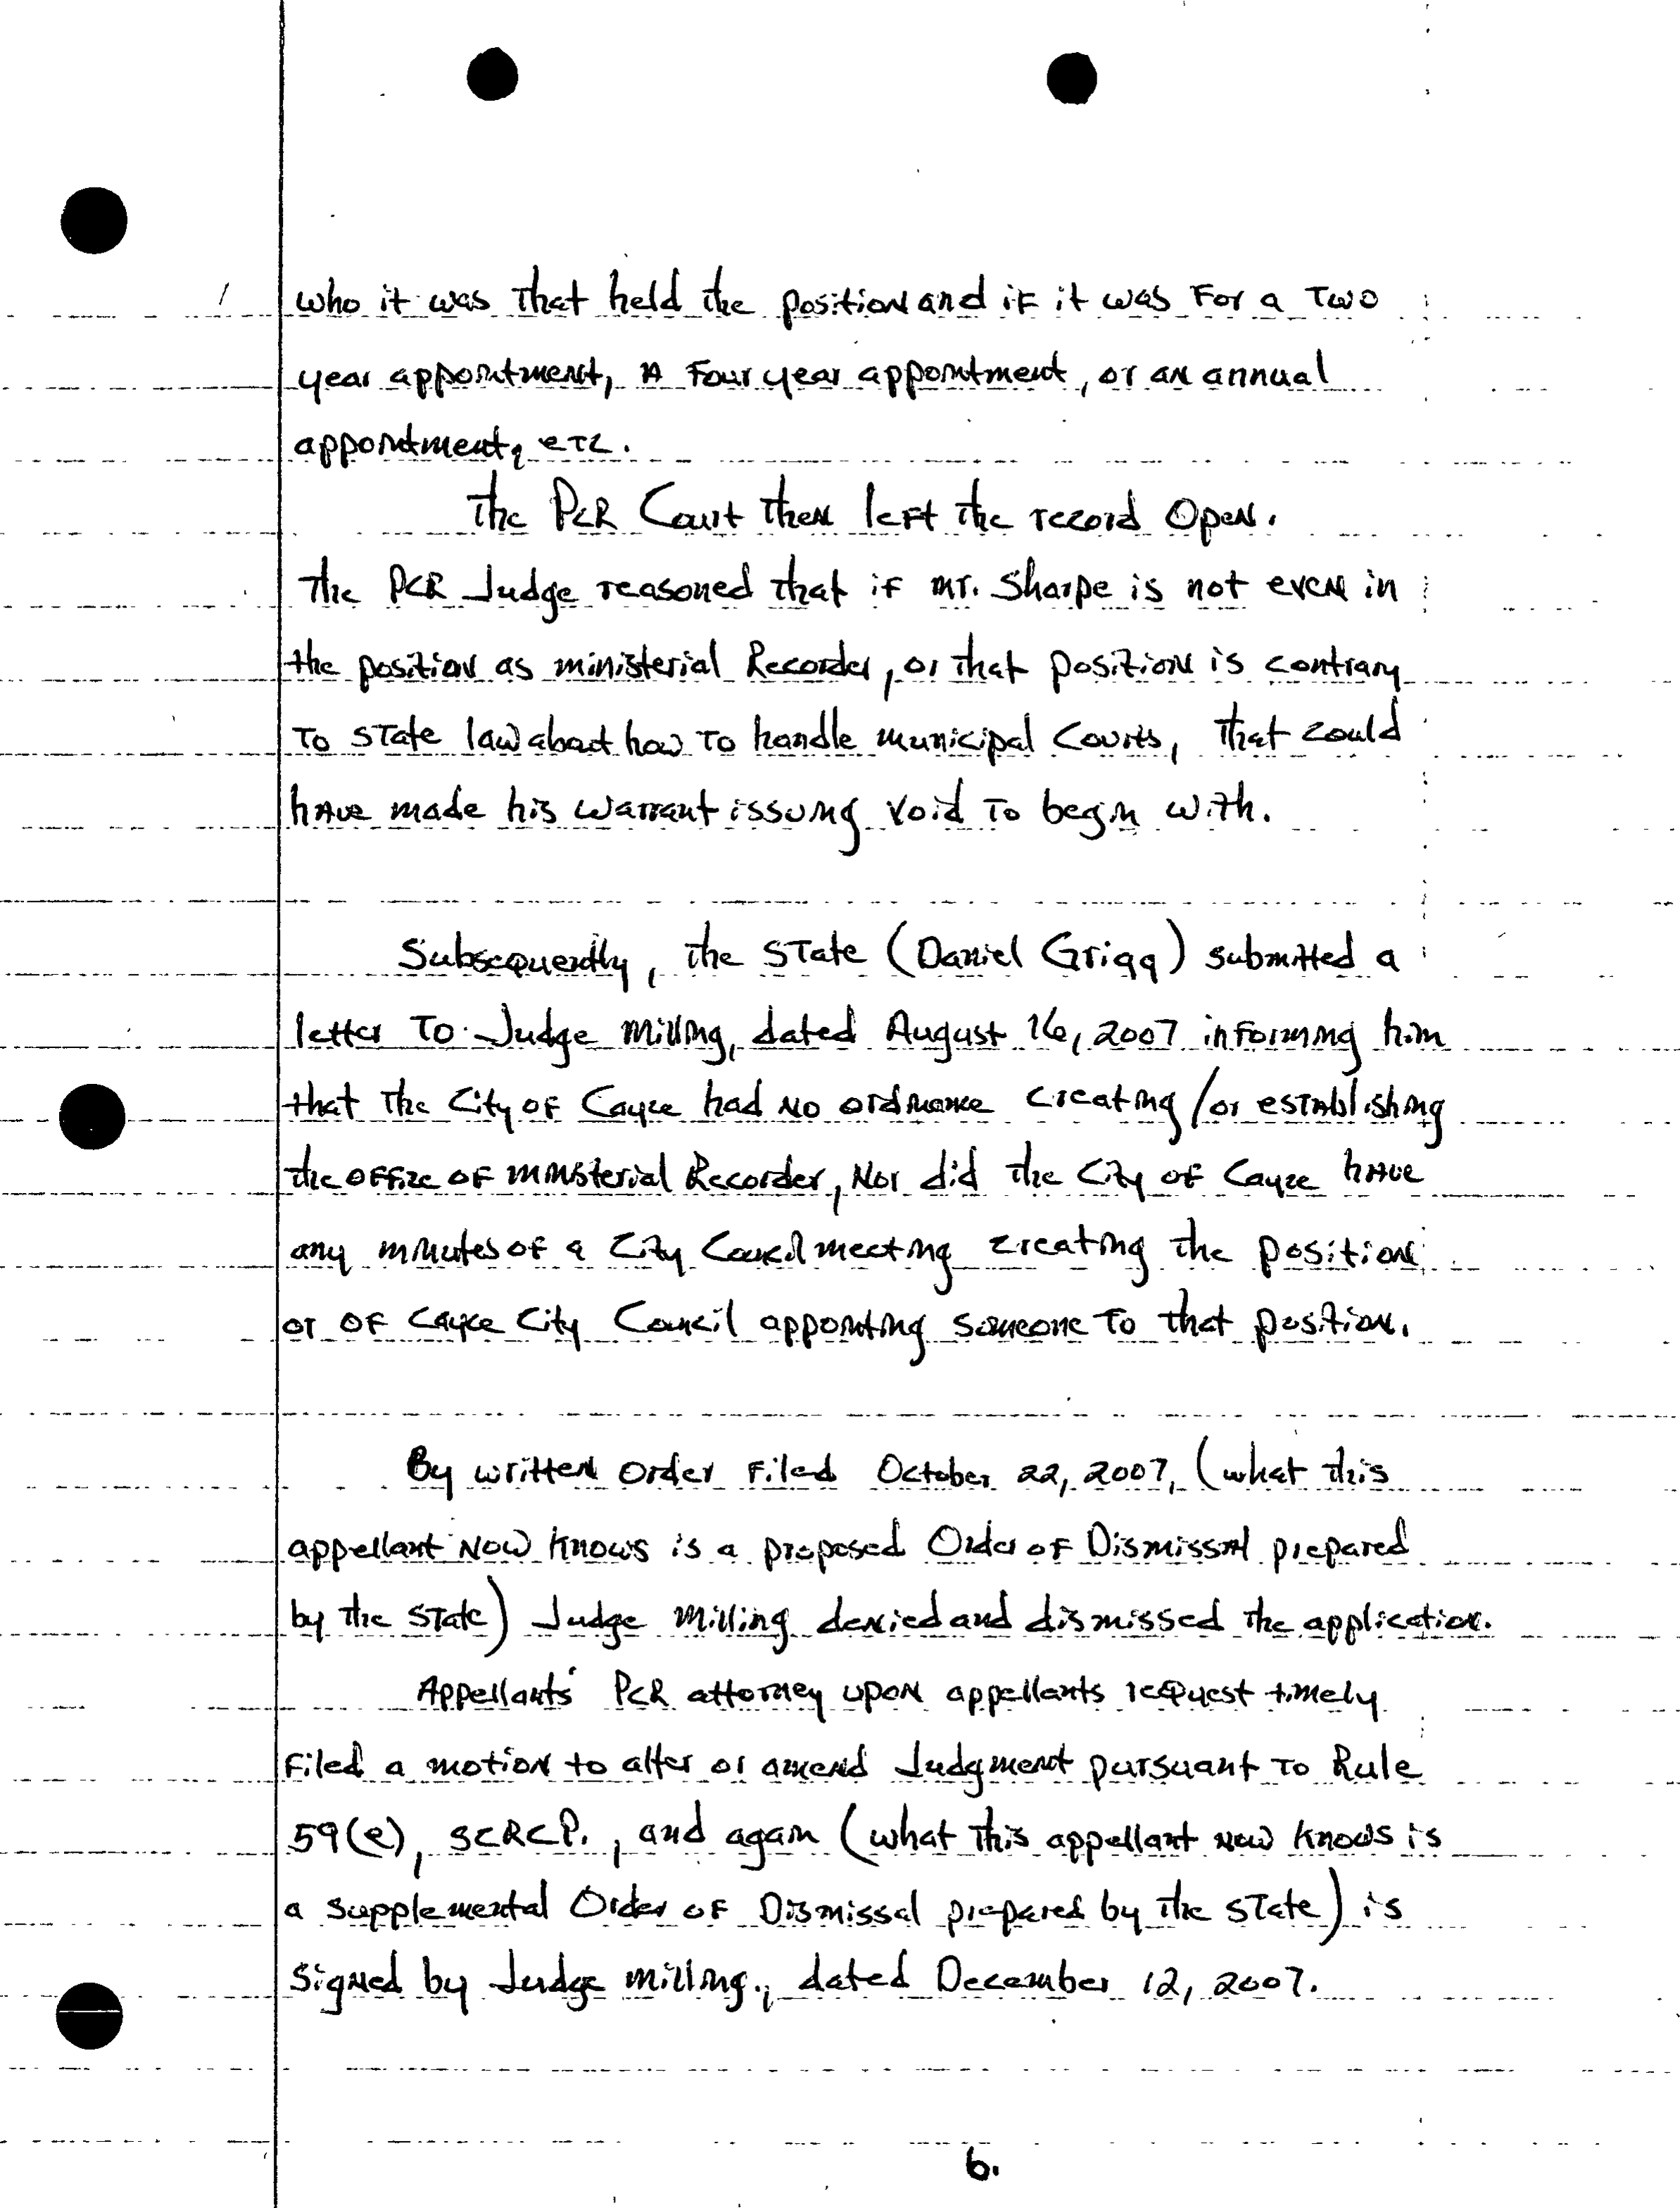 who it was that held the position and if it was For a Two
year appointment, A Four year appointment, or an annual
appointment, etc.
The PCR Court then left the record Open.
The PCR Judge reasoned that if Mr. Sharpe is not even in
the position as ministerial Recorder, or that position is contrary
To State law about how To handle municipal Courts, that could
have made his warrant issuing void To begin with.
Subsequently, the State (Daniel Grigg) submitted a
letter To Judge Milling, dated August 16, 2007 informing him
that the City of Cayce had no ordinance creating/or establishing
the office of ministerial Recorder, Nor did the City of Cayce have
any minutes of a City Council meeting creating the position
or of Cayce City Council appointing someone To that position.
By written Order Filed October 22, 2007, (what this
appellant Now Knows is a proposed Order of Dismissal prepared
by the State) Judge Milling denied and dismissed the application.
Appellants' PCR attorney upon appellants request timely
Filed a motion to alter or amend Judgment pursuant To Rule
59(e), SCRCP., and again (what this appellant now knows is
a supplemental Order of Dismissal prepared by the State) is
signed by Judge Milling., dated December 12, 2007.
6.